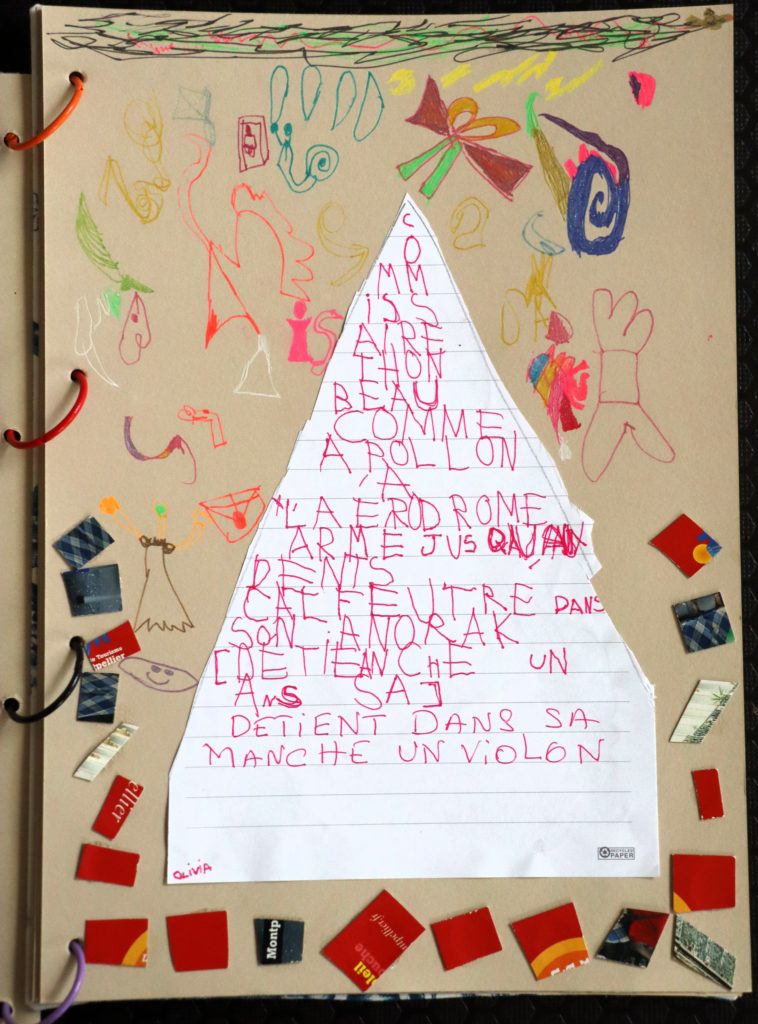 C
O
MM
ISS
AIRE
THON
BEAU
COMME
APOLLON
À
L'AÉRODROME
ARME JUSQU'AUX
DENTS
CALFEUTRE DANS
SON ANORAK
UN
ANS SA]
DÉTIENT DANS SA
MANCHE UN VIOLON
OLIVIA
RECYCLED
PAPER
Tourisme
pellier
ellier
Montp
leil
ouche